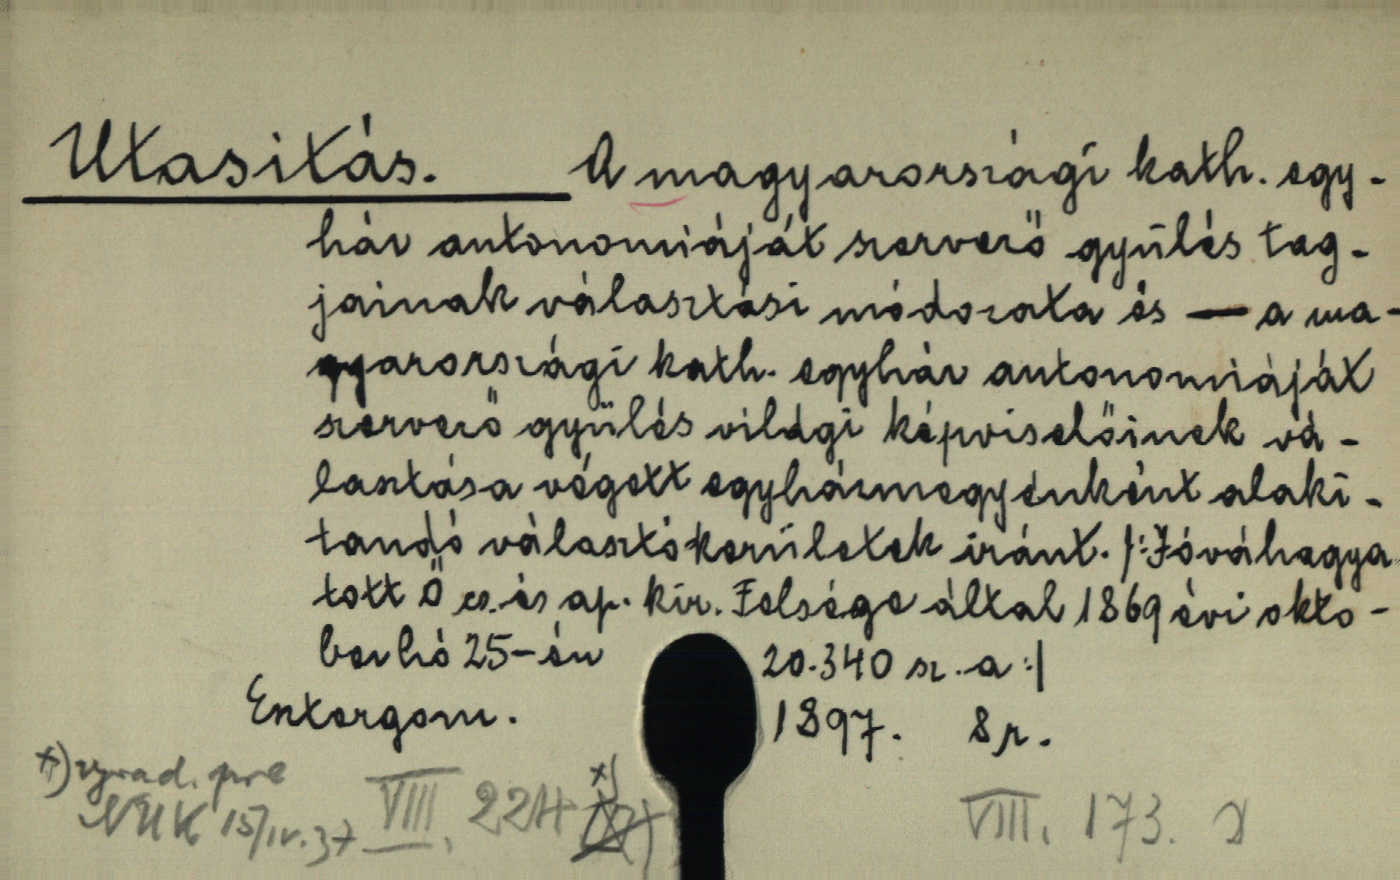 Utasitás. A magyarországi kath. egy-
ház autonomiáját szervező gyűlés tag-
jainak választási módozata és — a ma-
gyarországi kath. egyház autonomiáját
szervező gyűlés világi képviselőinek vá-
lasztása végett egyházmegyénként alakí-
tandó választókerületek iránt. /:Jóváhagya
tott Ő cs. és ap. kir. Felsége által 1869 évi okto-
berhó 25-én 20.340 sz. a :/
Esztergom. 1897. 8 r.
x) vyrad. pre VIII. 224 x) VIII. 173.
NUK 15/IV. 37